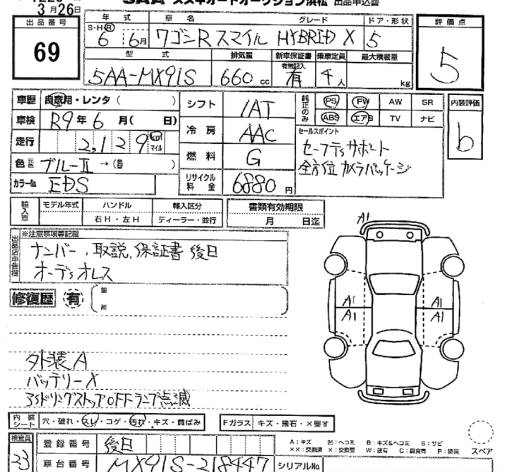 SAA スズキオートオークション浜松 出品申込書
3月26日
69
年式 車名 グレード ドア・形状
S・H・R 6年 6月 ワゴンR スマイル HYBRID X 5
型式 排気量 新車保証書 乗車定員 最大積載量
5AA-MX91S 660cc 有 4人 kg
評価点
5
車歴 自家用・レンタ( )
車検 R9年6月( 日)
走行 2,129 km マイル
色 ブルーⅡ→( 色)
カラーNo. EDS
シフト IAT
冷房 AAC
燃料 G
リサイクル料金 6880円
純正のみ PS PW AW SR
ABS エアB TV ナビ
内装評価
b
セールスポイント
セーフティサポート
全方位カメラパッケージ
輸入車 モデル年式 ハンドル 輸入区分 書類有効期限
右H・左H ディーラー・並行 月 日迄
※注意事項等記載
ナンバー、取説、保証書 後日
オーディオレス
修復歴 有
A1
A1 A1
A1 A1
外装A
バッテリーX
アイドリングストップOFFランプ点滅
内張シート 穴・破れ・スレ・コゲ・汚れ・キズ・黄ばみ Fガラス キズ・飛石・X要す
検査員 23
登録番号 後日
車台番号 MX91S-218447 シリアルNo.
A:キズ B:キズ&ヘコミ S:サビ
スペア